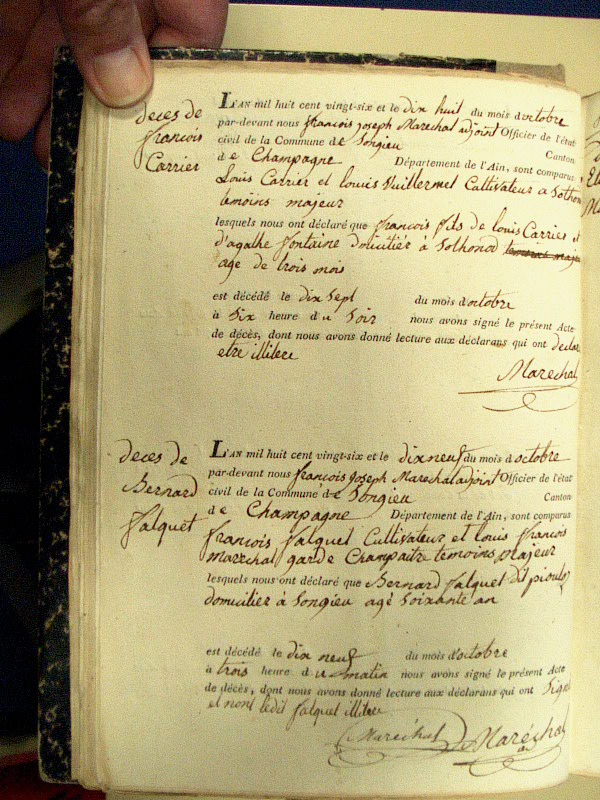 deces de
françois
Carrier
L'AN mil huit cent vingt-six et le dix huit du mois d'octobre
par-devant nous françois joseph Marechal adjoint Officier de l'état
civil de la Commune de Songieu Canton
de Champagne Département de l'Ain, sont comparus
Louis Carrier et louis Vuillermet Cultivateur a Sothon
temoins majeur
lesquels nous ont déclaré que françois fils de louis Carrier et
d'agathe fontaine domicilier à Sothonod
age de trois mois
est décédé le dix Sept du mois d'octobre
à Six heure du Soir nous avons signé le présent Acte
de décès, dont nous avons donné lecture aux déclarans qui ont declare
etre illitere
Marechal
deces de
Bernard
falquet
L'AN mil huit cent vingt-six et le dix neuf du mois d'octobre
par-devant nous françois joseph Marechal adjoint Officier de l'état
civil de la Commune de Songieu Canton
de Champagne Département de l'Ain, sont comparus
françois falquet Cultivateur et louis françois
marechal garde Champaitre temoins majeur
lesquels nous ont déclaré que Bernard falquet dit
domicilier à Songieu agé Soixante an
est décédé le dix neuf du mois d'octobre
à trois heure du matin nous avons signé le présent Acte
de décès, dont nous avons donné lecture aux déclarans qui ont Signé
et non ledit falquet illitere
Maréchal Maréchal